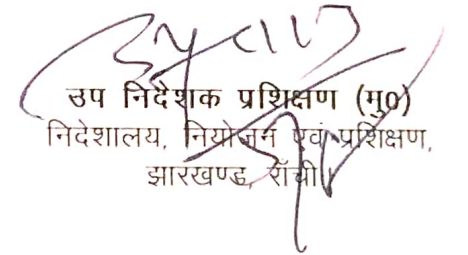 उप निदेशक प्रशिक्षण (मु0)
निदेशालय, नियोजन एवं प्रशिक्षण,
झारखण्ड, राँची।